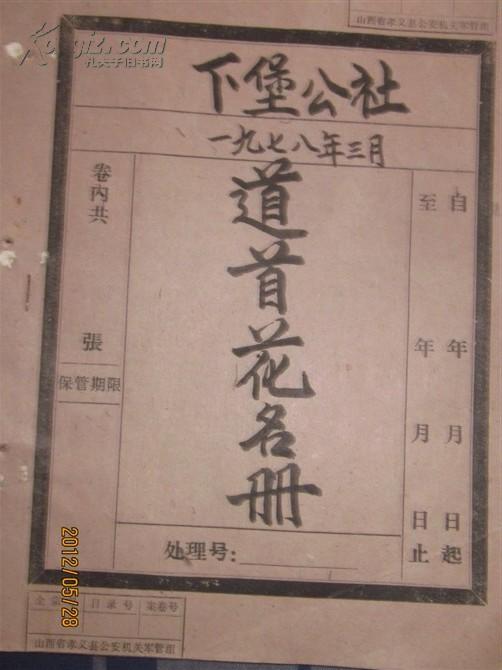 山西省孝义县公安机关军管组
kongfz.com
孔夫子旧书网
下堡公社
一九七八年三月
道首花名册
自 年 月 日起
至 年 月 日止
卷内共 張
保管期限
处理号:
全宗号 目录号 案卷号
山西省孝义县公安机关军管组
2012/05/28